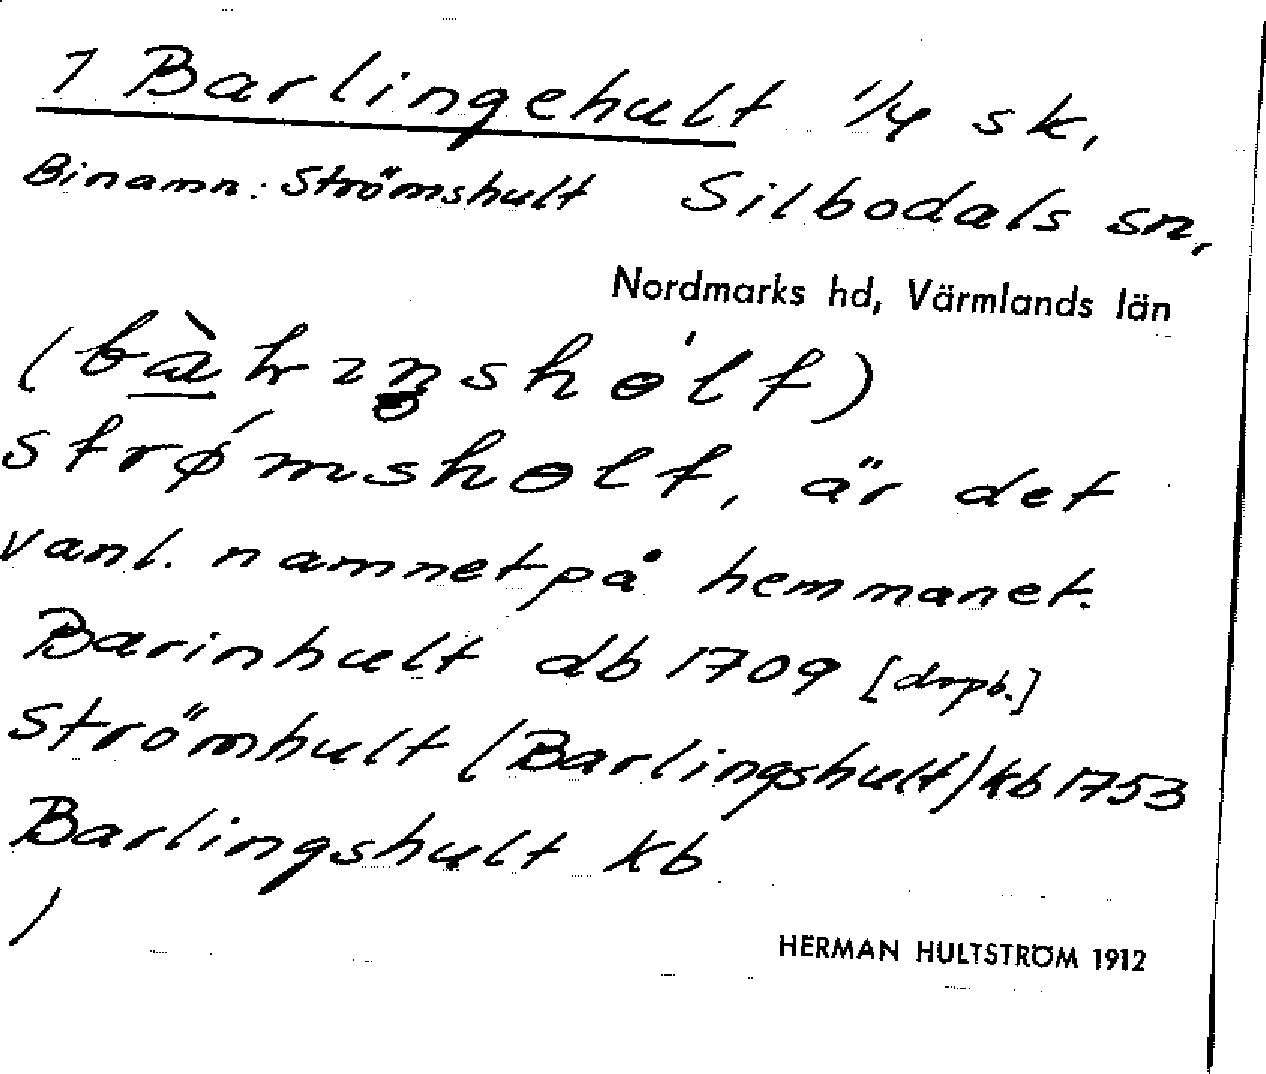 1 Barlingehult 1/4 sk,
Binamn: Strömshult Silbodals sn,
Nordmarks hd, Värmlands län
strømshɵlt, är det
vanl. namnet på hemmanet.
Barinhult db 1709 [drpb.]
Strömhult (Barlingshult) kb 1753
Barlingshult kb
HERMAN HULTSTRÖM 1912